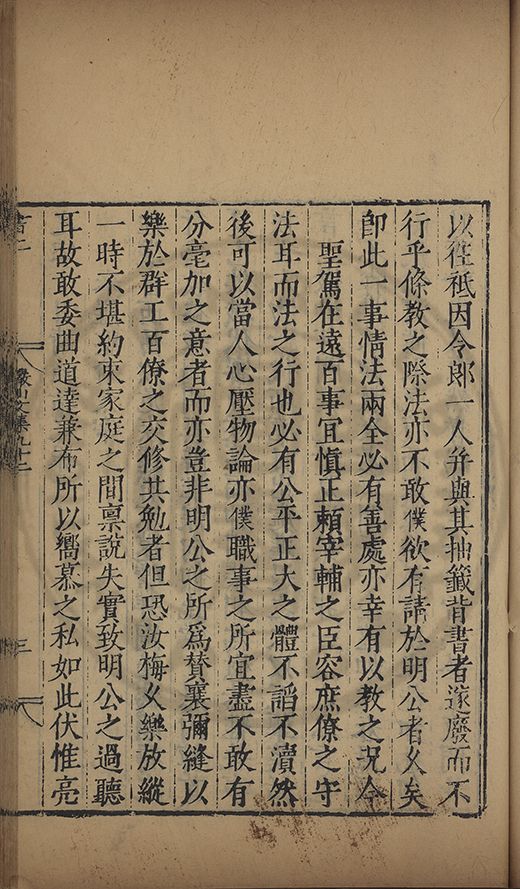 以徃祗因令郎一人弁與其抽籤背書者遂廢而不
行乎條教之際法亦不敢僕欲有請於明公者乆矣
卽此一事情法兩全必有善處亦幸有以教之况今
聖駕在遠百事宜愼正頼宰輔之臣容庶僚之守
法耳而法之行也必有公平正大之體不謟不瀆然
後可以當人心壓物論亦僕職事之所宜盡不敢有
分毫加之意者而亦豈非明公之所爲賛襄彌縫以
樂於群工百僚之交修共勉者但恐汝梅乆樂放縱
一時不堪約束家庭之間禀說失實致明公之過聽
耳故敢委曲道達兼布所以嚮慕之私如此伏惟亮
書二
儼山文集九十二
三